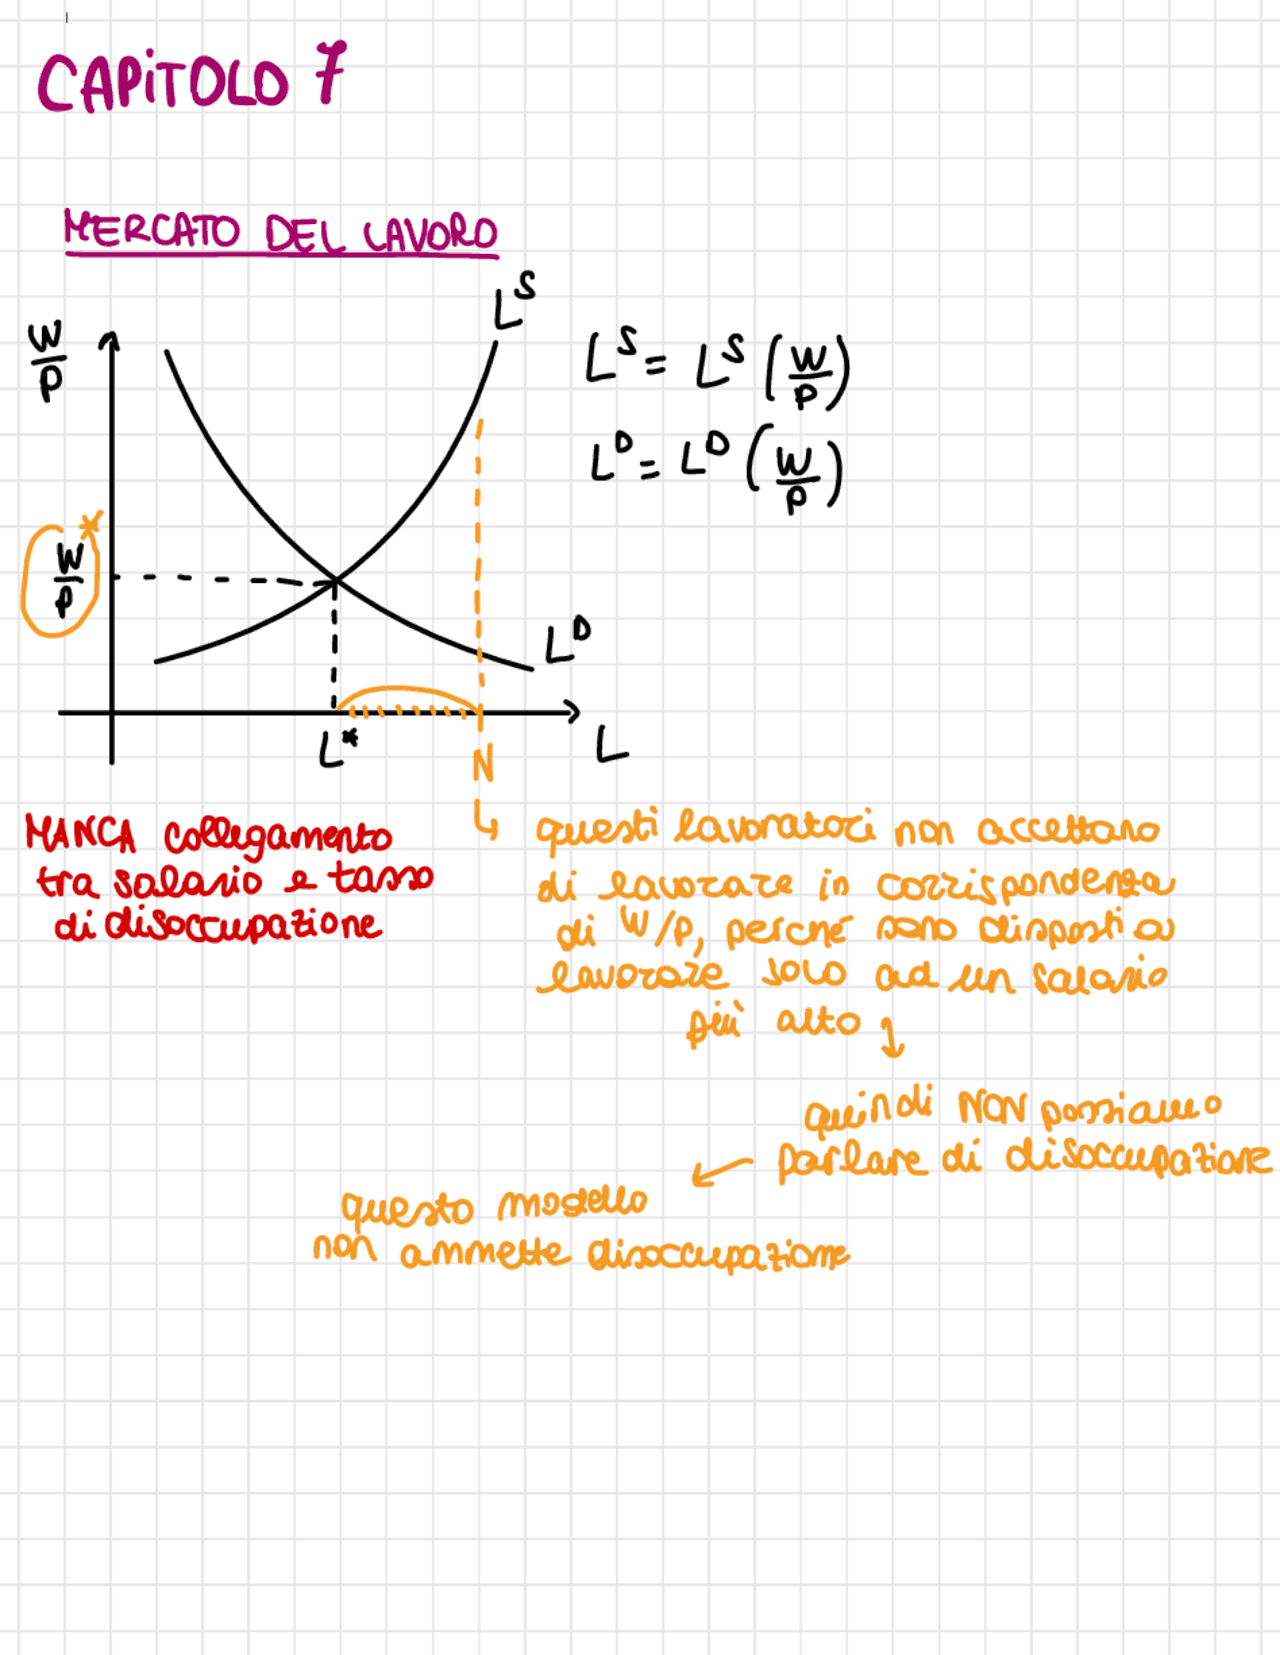 CAPITOLO 7
MERCATO DEL LAVORO
L^S
W/P
L^S = L^S (W/P)
L^D = L^D (W/P)
W/P *
L^D
L* N L
MANCA collegamento
tra salario e tasso
di disoccupazione
questi lavoratori non accettano
di lavorare in corrispondenza
di W/P, perché sono disposti a
lavorare solo ad un salario
più alto
quindi NON possiamo
parlare di disoccupazione
questo modello
non ammette disoccupazione